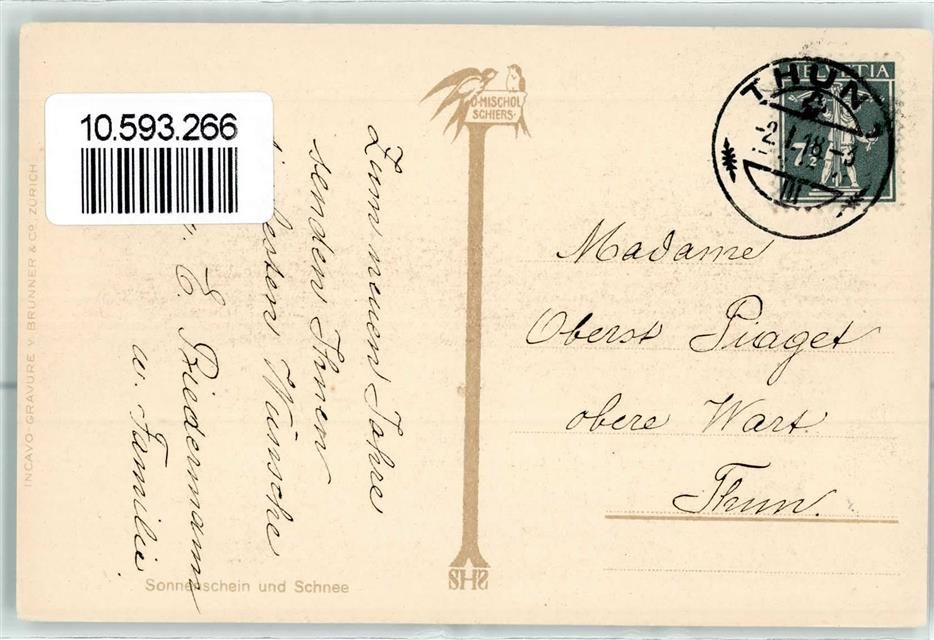 10.593.266
O·MISCHOL
SCHIERS·
HELVETIA
7½
THUN
-2.I.18.-3
III
Zum neuen Jahre
senden Ihnen
besten Wünsche
E. Biedermann
u. Familie.
Madame
Oberst Piaget
obere Wart.
Thun.
INCAVO-GRAVURE V. BRUNNER & CO. ZÜRICH
Sonnenschein und Schnee
SHS